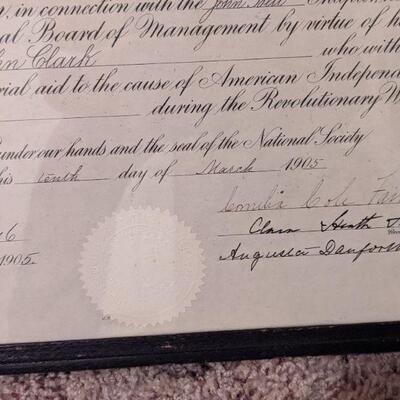 in connection with the John
al Board of Management by virtue of h
hn Clark who with
rial aid to the cause of American Independ
during the Revolutionary W
under our hands and the seal of the National Society
his tenth day of March 1905
Cornelia Cole Fair
6
Clara
1905.
Augusta Danforth